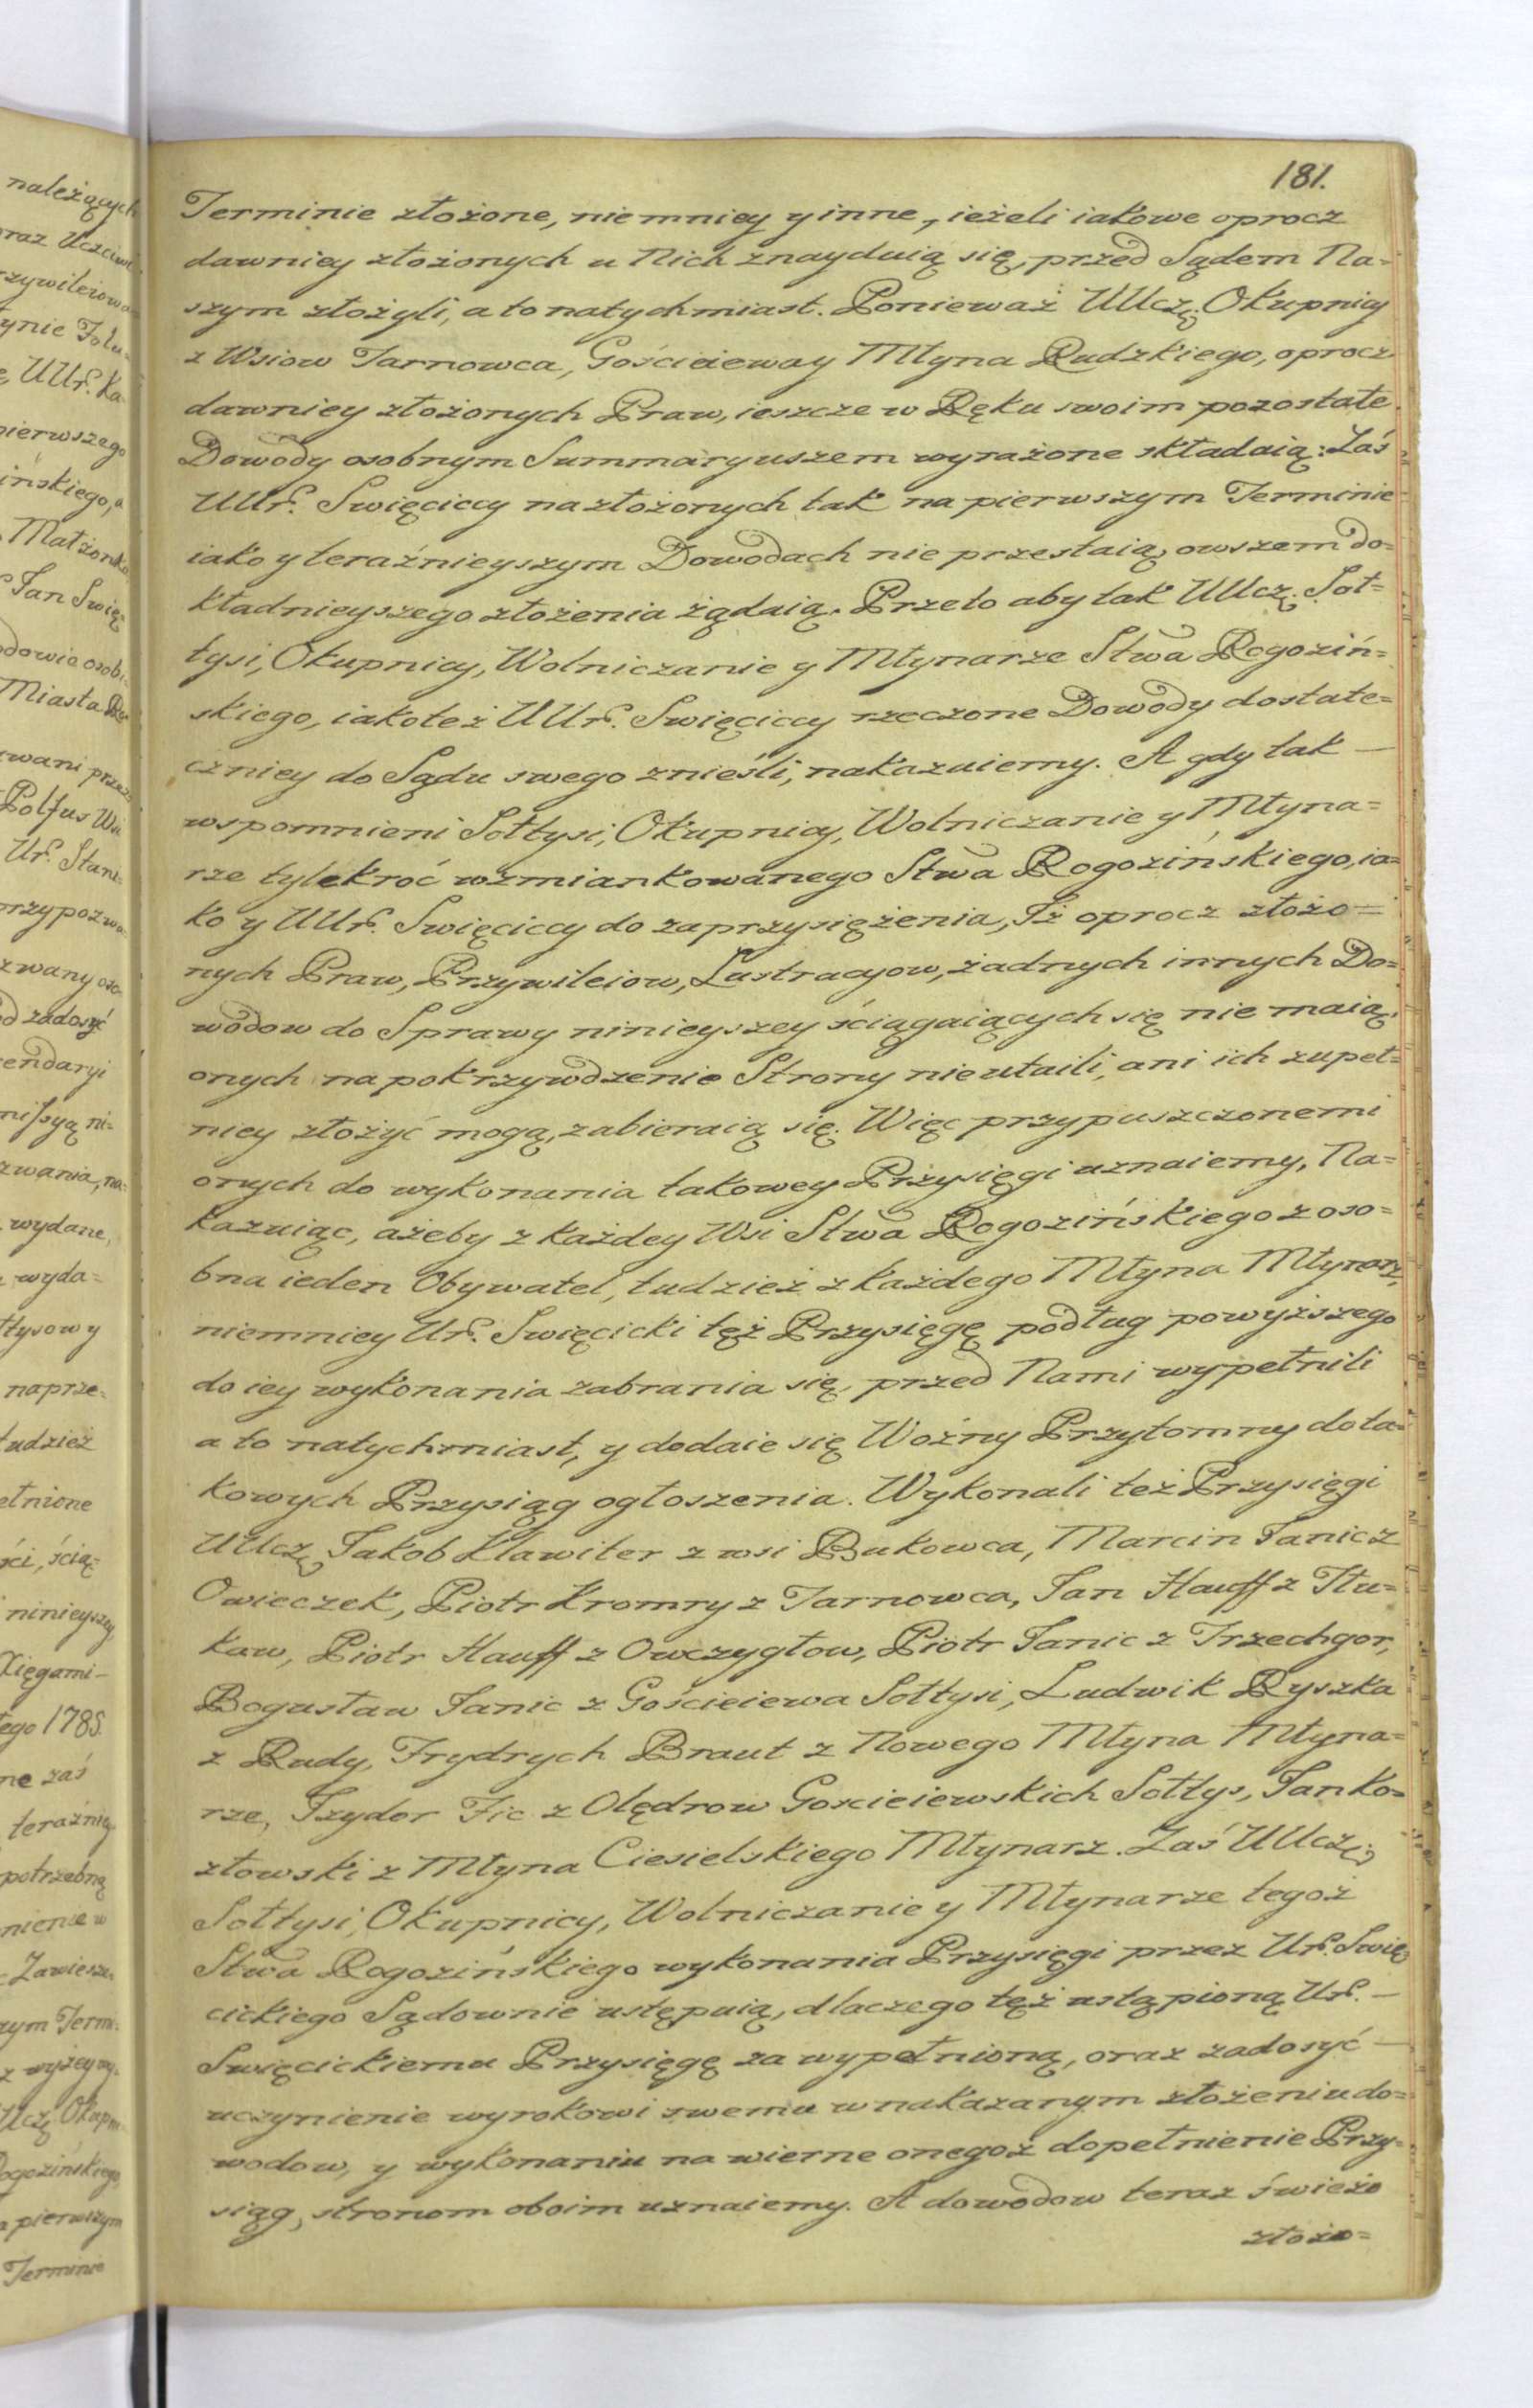 181.
Terminie złożone, niemniey y inne, ieżeli iakowe oprocz
dawniey złożonych u Nich znayduią się, przed Sądem Na=
szym złożyli, a to natychmiast. Ponieważ UUcz. Okupnicy
z Wsiow Tarnowca, Gościeiewa y Młyna Rudzkiego, oprocz
dawniey złożonych Praw, ieszcze w Ręku swoim pozostałe
Dowody osobnym Summaryuszem wyrażone składaią: Zaś
UUr. Swięciccy na złożonych tak na pierwszym Terminie
iako y teraźnieyszym Dowodach nie przestaią, owszem do=
kładnieyszego złożenia żądaią. Przeto aby tak UUcz. Soł=
tysi, Okupnicy, Wolniczanie y Młynarze Stwa Rogoziń=
skiego, iakoteż UUr. Swięciccy rzeczone Dowody dostate=
czniey do Sądu swego znieśli, nakazuiemy. A gdy tak —
wspomnieni Sołtysi, Okupnicy, Wolniczanie y Młyna=
rze tylekroć wzmiankowanego Stwa Rogozińskiego, ia=
ko y UUr. Swięciccy do zaprzysiężenia, Iż oprocz złożo=
nych Praw, Przywileiow, Lustracyow, żadnych innych Do=
wodow do Sprawy ninieyszey ściągaiących się nie maią,
onych na pokrzywdzenie Strony nie utaili, ani ich zupeł=
niey złożyć mogą, zabieraią się. Więc przypuszczonemi
onych do wykonania takowey Przysięgi uznaiemy, Na=
kazuiąc, ażeby z każdey Wsi Stwa Rogozińskiego z oso=
bna ieden Obywatel, tudzież z każdego Młyna Młynarz,
niemniey Ur. Swięcicki też Przysięgę podług powyższego
do iey wykonania zabrania się, przed Nami wypełnili
a to natychmiast, y dodaie się Woźny Przytomny do ta=
kowych Przysiąg ogłoszenia. Wykonali też Przysięgi
UUcz. Jakob Klawiter z wsi Bukowca, Marcin Janic z
Owieczek, Piotr Kromry z Tarnowca, Jan Hauff z Tłu=
kaw, Piotr Hauff z Owczygłow, Piotr Janic z Trzechgor,
Bogusław Janic z Gościeiewa Sołtysi, Ludwik Ryszka
z Rudy, Frydrych Braut z Nowego Młyna Młyna=
rze, Izydor Fic z Olędrow Gościeiewskich Sołtys, Jan Ko=
złowski z Młyna Ciesielskiego Młynarz. Zaś UUcz.
Sołtysi, Okupnicy, Wolniczanie y Młynarze tegoż
Stwa Rogozińskiego wykonania Przysięgi przez Ur. Swię
cickiego Sądownie ustępuią, dlaczego też ustąpioną Ur. —
Swięcickiemu Przysięgę za wypełnioną, oraz zadosyć —
uczynienie wyrokowi swemu w nakazanym złożeniu do=
wodow, y wykonaniu na wierne onegoż dopełnienie Przy=
siąg, stronom oboim uznaiemy. A dowodow teraz świeżo
złożo=